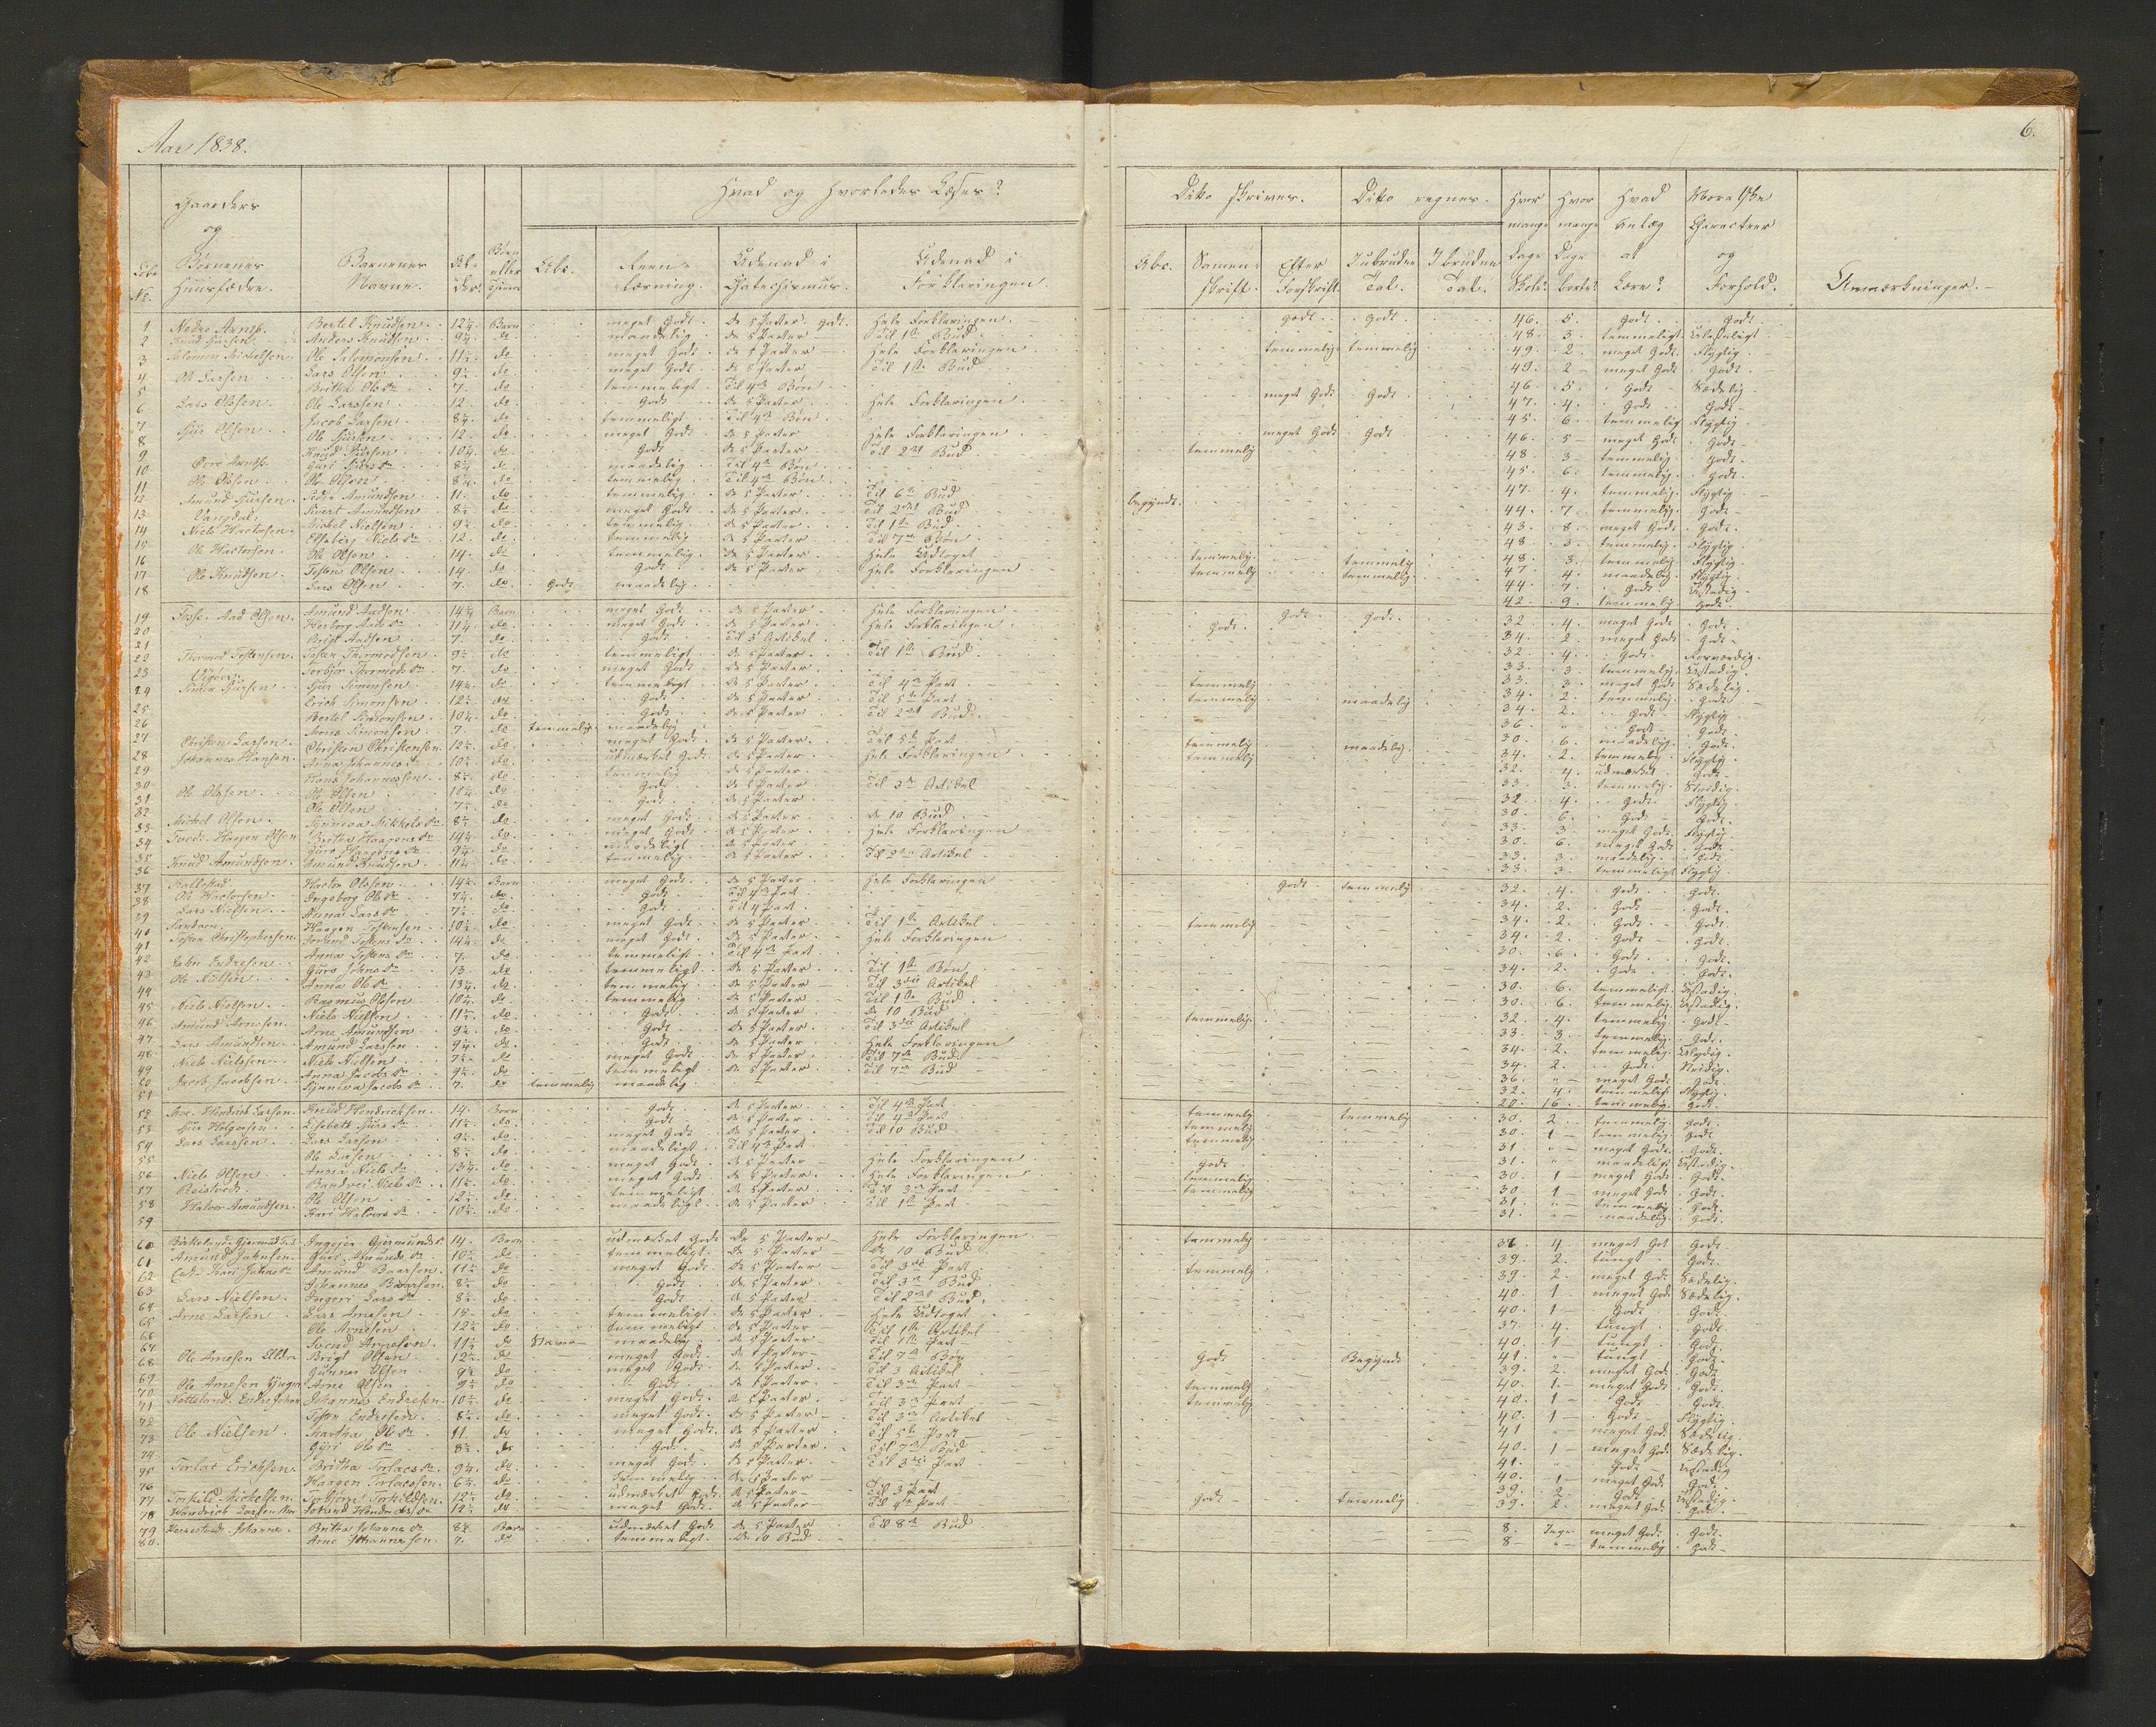 Aar 1838.
6.
Hvad og hvorledes Læses?
Dito skrives.
Dito regnes.
Gaarders og Børnenes Huusfædre.
Barnenes Navne.
Al-der.
Børn eller Tjenere
Abc.
Reen-læsning.
Udenad i Chatechismus.
Udenad i Forklaringen.
Abc.
Samen-skrift.
Efter Forskrift.
Iubrudne Tal.
Ibrudne Tal.
Hvor mange Dage Skole?
Hvor mange Dage borte?
Hvad Anlæg at Lære?
Moralske Characteer og Forhold.
Anmærkninger.
1 Nedre Arnts. Bertel Knudsen 12¼ Barn meget Godt de 5 Parter Godt Hele Forklaringen Godt Godt 46 5 Godt Godt
2 Anders Knudsen 9¼ do maadelig de 5 Parter Til 1te Bud 48 3 temmeligt
3 Salomon Michelsen Ole Salomonsen 11½ do meget Godt de 5 Parter Hele Forklaringen temmelig temmelig 49 2 meget Godt Flygtig
4 Ole Larsen Lars Olsen 9½ do meget Godt de 5 Parter Til 1te Bud 49 2 meget Godt Godt
5 Britha Ols Dr 7 do temmeligt Til 4de Bøn 46 5 Godt Sædelig
6 Lars Olsen Ole Larssen 12 do Godt de 5 Parter Hele Forklaringen meget Godt Godt 47 4 Godt Godt
7 Jacob Larsen 8¼ do temmeligt Til 4de Bøn 45 6 temmelig Flygtig
8 Sjur Olsen Ole Sjursen 12 do meget Godt de 5 Parter Hele Forklaringen meget Godt Godt 46 5 meget Godt Godt
9 Knud Sjursen 10¼ do Godt de 5 Parter Til 2det Bud temmelig 48 3 temmelig Godt
10 Øvre Arnts. Guri Sjurs Dr 8¼ do maadelig Til 4de Bøn 45 6 temmelig Godt
11 Ole Olsen Ole Olsen 8¼ do temmelig Til 4de Bøn 47 4 temmelig Flygtig
12 Amund Sjursen Peder Amundsen 11 do temmelig de 5 Parter Til 6te Bud begyndt 44 7 temmelig Godt
13 Vangdal Sivert Amundsen 8½ do meget Godt de 5 Parter Til 2det Bud 43 8 meget Godt Godt
14 Niels Hactorsen Michel Nielsen 9½ do temmelig de 5 Parter Til 1te Bud 48 3 temmelig Flygtig
15 Ole Hactorsen Elseberg Niels Dr 12 do temmelig de 5 Parter Til 7de Bøn 48 3 temmelig Flygtig
16 Ole Olsen 14 do temmelig de 5 Parter Hele Udtoget temmelig temmelig 47 4 maadelig Flygtig
17 Ole Knudsen Tosten Olsen 14 do Godt de 5 Parter Hele Forklaringen temmelig temmelig 44 7 Godt
18 Lars Olsen 7 do Godt maadelig 42 9 temmelig Godt
19 Tosse Aad Olsen Amund Aadsen 14¼ Barn meget Godt de 5 Parter Hele Forklaringen Godt Godt 32 4 meget Godt Godt
20 Herborg Aads Dr 11¼ do meget Godt de 5 Parter Hele Forklaringen Godt 34 2 meget Godt Godt
21 Brigt Aadsen 7 do Godt Til 3 Artikel 32 4 Godt
22 Thormod Tostensen Tosten Thormodsen 9½ do temmeligt de 5 Parter Til 1te Bud 33 3 temmelig
23 Torbjør Thormods Dr 7 do meget Godt de 5 Parter 33 3 meget Godt Sædelig
24 Simon Sjursen Sjur Simonsen 14¼ do temmeligt de 5 Parter Til 4de Part temmelig 34 2 temmelig Godt
25 Erich Simonsen 12½ do Godt de 5 Parter Til 5te Part temmelig maadelig 34 2 Godt Flygtig
26 Bertel Simonsen 10¼ do Godt de 5 Parter Til 2det Bud 36 Godt Godt
27 Arne Simonsen 7 do temmelig maadelig 30 6 maadelig Godt
28 Christen Larsen Christen Christensen 12½ do meget Godt de 5 Parter Til 5te Part temmelig maadelig 34 2 temmelig Flygtig
29 Johannes Hansen Anna Johannes Dr 10½ do udmærket Godt de 5 Parter Hele Forklaringen temmelig 32 4 udmærket Godt
30 Hans Johannessen 8½ do temmelig de 5 Parter 33 3 temmelig
31 Ole Olsen Ole Olsen 10¼ do Godt de 5 Parter Til 3de Artikel 32 4 Godt Flygtig
32 Ole Olsen 7½ do Godt de 5 Parter 30 6 Godt Godt
33 Michel Olsen Synneva Mikkels Dr 8½ do meget Godt de 5 Parter de 10 Bud 33 3 meget Godt Flygtig
34 Haagen Olsen Britha Haagens Dr 14¼ do meget Godt de 5 Parter Hele Forklaringen 30 6 meget Godt Godt
35 Guro Haagens Dr 9¼ do maadeligt de 5 Parter 33 3 maadelig Godt
36 Knud Amundsen Amund Knudsen 11¼ do temmelig de 5 Parter Til 2den Artikel 33 3 temmeligt Flygtig
37 Kallestad Hactor Olsen 14½ Barn meget Godt de 5 Parter Hele Forklaringen Godt temmelig 32 4 Godt Godt
38 Ole Hactorsen Ingeborg Ols Dr 7½ do Godt Til 4de Part 34 2 Godt Godt
39 Lars Nielsen Anna Lars Dr 7½ do Godt Til 4 Part 34 2 Godt Godt
40 Haagen Tostensen 10½ do meget Godt de 5 Parter Til 1te Artikel temmelig 34 2 Godt Godt
41 Tosten Christophersen Torand Tostens Dr 14¼ do meget Godt de 5 Parter Hele Forklaringen 30 6 Godt Godt
42 Anna Tostens Dr 7 do temmeligt Til 4de Part 34 2 Godt Godt
43 John Endresen Guro Johns Dr 13 do temmeligt de 5 Parter Til 1te Bøn 30 6 temmeligt
44 Ole Nielsen Anna Ols Dr 13¼ do temmelig de 5 Parter Til 3die Artikel 30 6 temmelig
45 Rasmus Olsen 10¼ do temmelig de 5 Parter Til 1te Bud 32 4 temmelig Godt
46 Niels Nielsen Niels Nielsen 11½ do Godt de 5 Parter de 10 Bud temmelig 33 3 temmelig Godt
47 Amund Arnesen Arne Amundsen 9½ do Godt de 5 Parter Til 3die Artikel 34 2 temmelig
48 Lars Amundsen Amund Larssen 9¼ do Godt de 5 Parter Hele Forklaringen 34 2 Godt
49 Niels Nielsen Niels Nielsen 7½ do meget Godt de 5 Parter Til 7de Bud 36 meget Godt Godt
50 Jacob Jacobsen Anna Jacobs Dr 9½ do temmeligt de 5 Parter Til 7de Bud 32 4 temmeligt Flygtig
51 Synneva Jacobs Dr 7 do temmelig maadelig 20 16 temmelig Godt
52 Hendrich Larsen Knud Hendricksen 14 Barn Godt de 5 Parter Til 4de Part temmelig temmelig 30 2 temmelig Godt
53 Sjur Helgesen Lisebett Sjurs Dr 11½ do Godt de 5 Parter Til 4de Part temmelig 30 1 temmelig Godt
54 Lars Larssen Lars Larsen 9½ do meget Godt de 5 Parter Til 10 Bud temmelig 31 meget Godt Godt
55 Ole Larsen 8½ do maadeligt Til 4de Part 31 maadeligt
56 Niels Olsen Anna Niels Dr 13¼ do meget Godt de 5 Parter Hele Forklaringen Godt 30 1 meget Godt Godt
57 Reistvedt Randvei Niels Dr 11½ do meget Godt de 5 Parter Hele Forklaringen temmelig 30 1 meget Godt Godt
58 Halvor Amundsen Ole Olsen 12½ do temmeligt de 5 Parter Til 3de Part temmelig 31 temmelig Godt
59 Kari Halvors Dr 10½ do maadeligt de 5 Parter Til 1te Part 31 maadelig Godt
60 Ingeger Giermunds Dr 14 Barn udmærket Godt De 5 Parter Hele Forklaringen temmelig 36 4 meget Got Godt
61 Amund Johnsen Guri Amunds Dr 10½ do temmeligt de 5 Parter de 10 Bud 39 2 tungt Godt
62 Kari Johns Dr Amund Baarsen 11½ do meget Godt de 5 Parter Til 3die Part temmelig 39 2 meget Godt Sædelig
63 Johannes Baarsen 8½ do Godt de 5 Parter Til 3de Bud 40 1 meget Godt Sædelig
64 Lars Nielsen Ingeri Lars Dr 8½ do Godt de 5 Parter Til 2det Bud 40 1 Godt Godt
65 Arne Larsen Lars Arnesen 15 do temmeligt de 5 Parter Hele Udtoget 37 4 tungt Godt
66 Ole Arnesen 12½ do temmeligt de 5 Parter Til 1te Artikel 40 1 tungt Godt
67 Svend Arnesen 11½ do Stave maadelig de 5 Parter Til 1te Part 41 tungt Godt
68 Ole Arnesen Eldre Brigt Olsen 12½ do meget Godt de 5 Parter Til 7de Bøn Godt Begyndt 39 2 meget Godt Godt
69 Gunner Olsen 9½ do meget Godt de 5 Parter Til 3 Artikel 40 1 meget Godt Godt
70 Ole Arnesen Yngre Arne Olsen 9½ do Godt de 5 Parter Til 3de Part temmelig 40 1 Godt Godt
71 Nætteland Endre Johannes Endresen 10½ do meget Godt de 5 Parter Til 3de Part temmelig 40 1 Godt Flygtig
72 Tosten Endresen 8½ do meget Godt de 5 Parter Til 3de Artikel 41 meget Godt Sædelig
73 Ole Nielsen Martha Ols Dr 11 do meget Godt de 5 Parter Til 5te Part 40 1 meget Godt Sædelig
74 Guri Ols Dr 8½ do Godt de 5 Parter Til 7de Bud 41 Godt
75 Torlac Erichsen Britha Torlacs Dr 9¼ do meget Godt de 5 Parter Til 3die Part 40 1 meget Godt Godt
76 Haagen Torlacsen 6½ do temmelig de 5 Parter 39 2 Godt
77 Torkild Mickelsen Torbjørn Torkildsen 12½ do udmærket Godt de 5 Parter Til 3 Part Godt temmelig 39 2 meget Godt Godt
78 Hendrich Larsen Torand Hendrichs Dr 12½ do meget Godt de 5 Parter Til 4de Part
79 Johanne Britha Johanne Dr 8½ Barn udmærket Godt de 5 Parter Til 8de Bud 8 Inge meget Godt Godt
80 Arne Johannesen 7 do temmeligt de 10 Bud 8 temmelig Godt